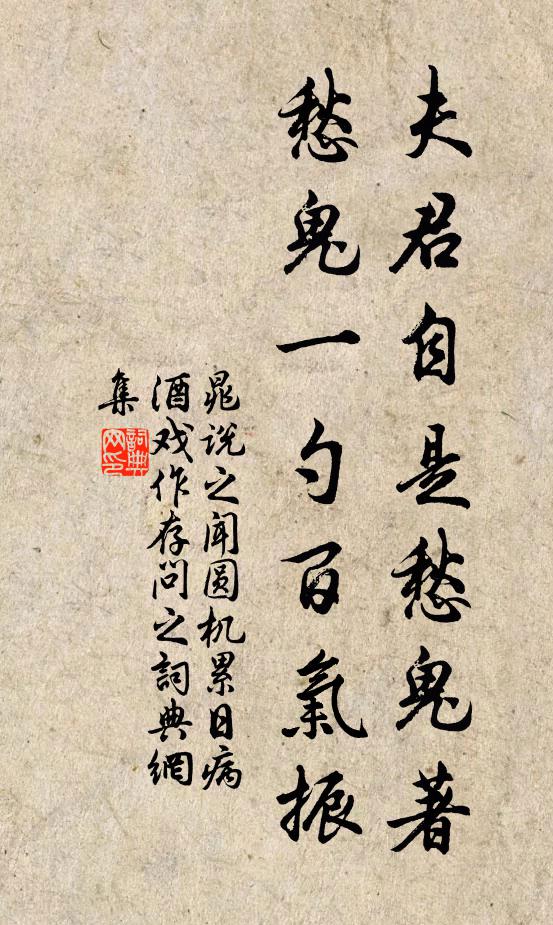 夫君自是愁鬼著
愁鬼一勺百氣振
晁说之闻圆机累日病
酒戏作存问之詞典網
集
詞典网印